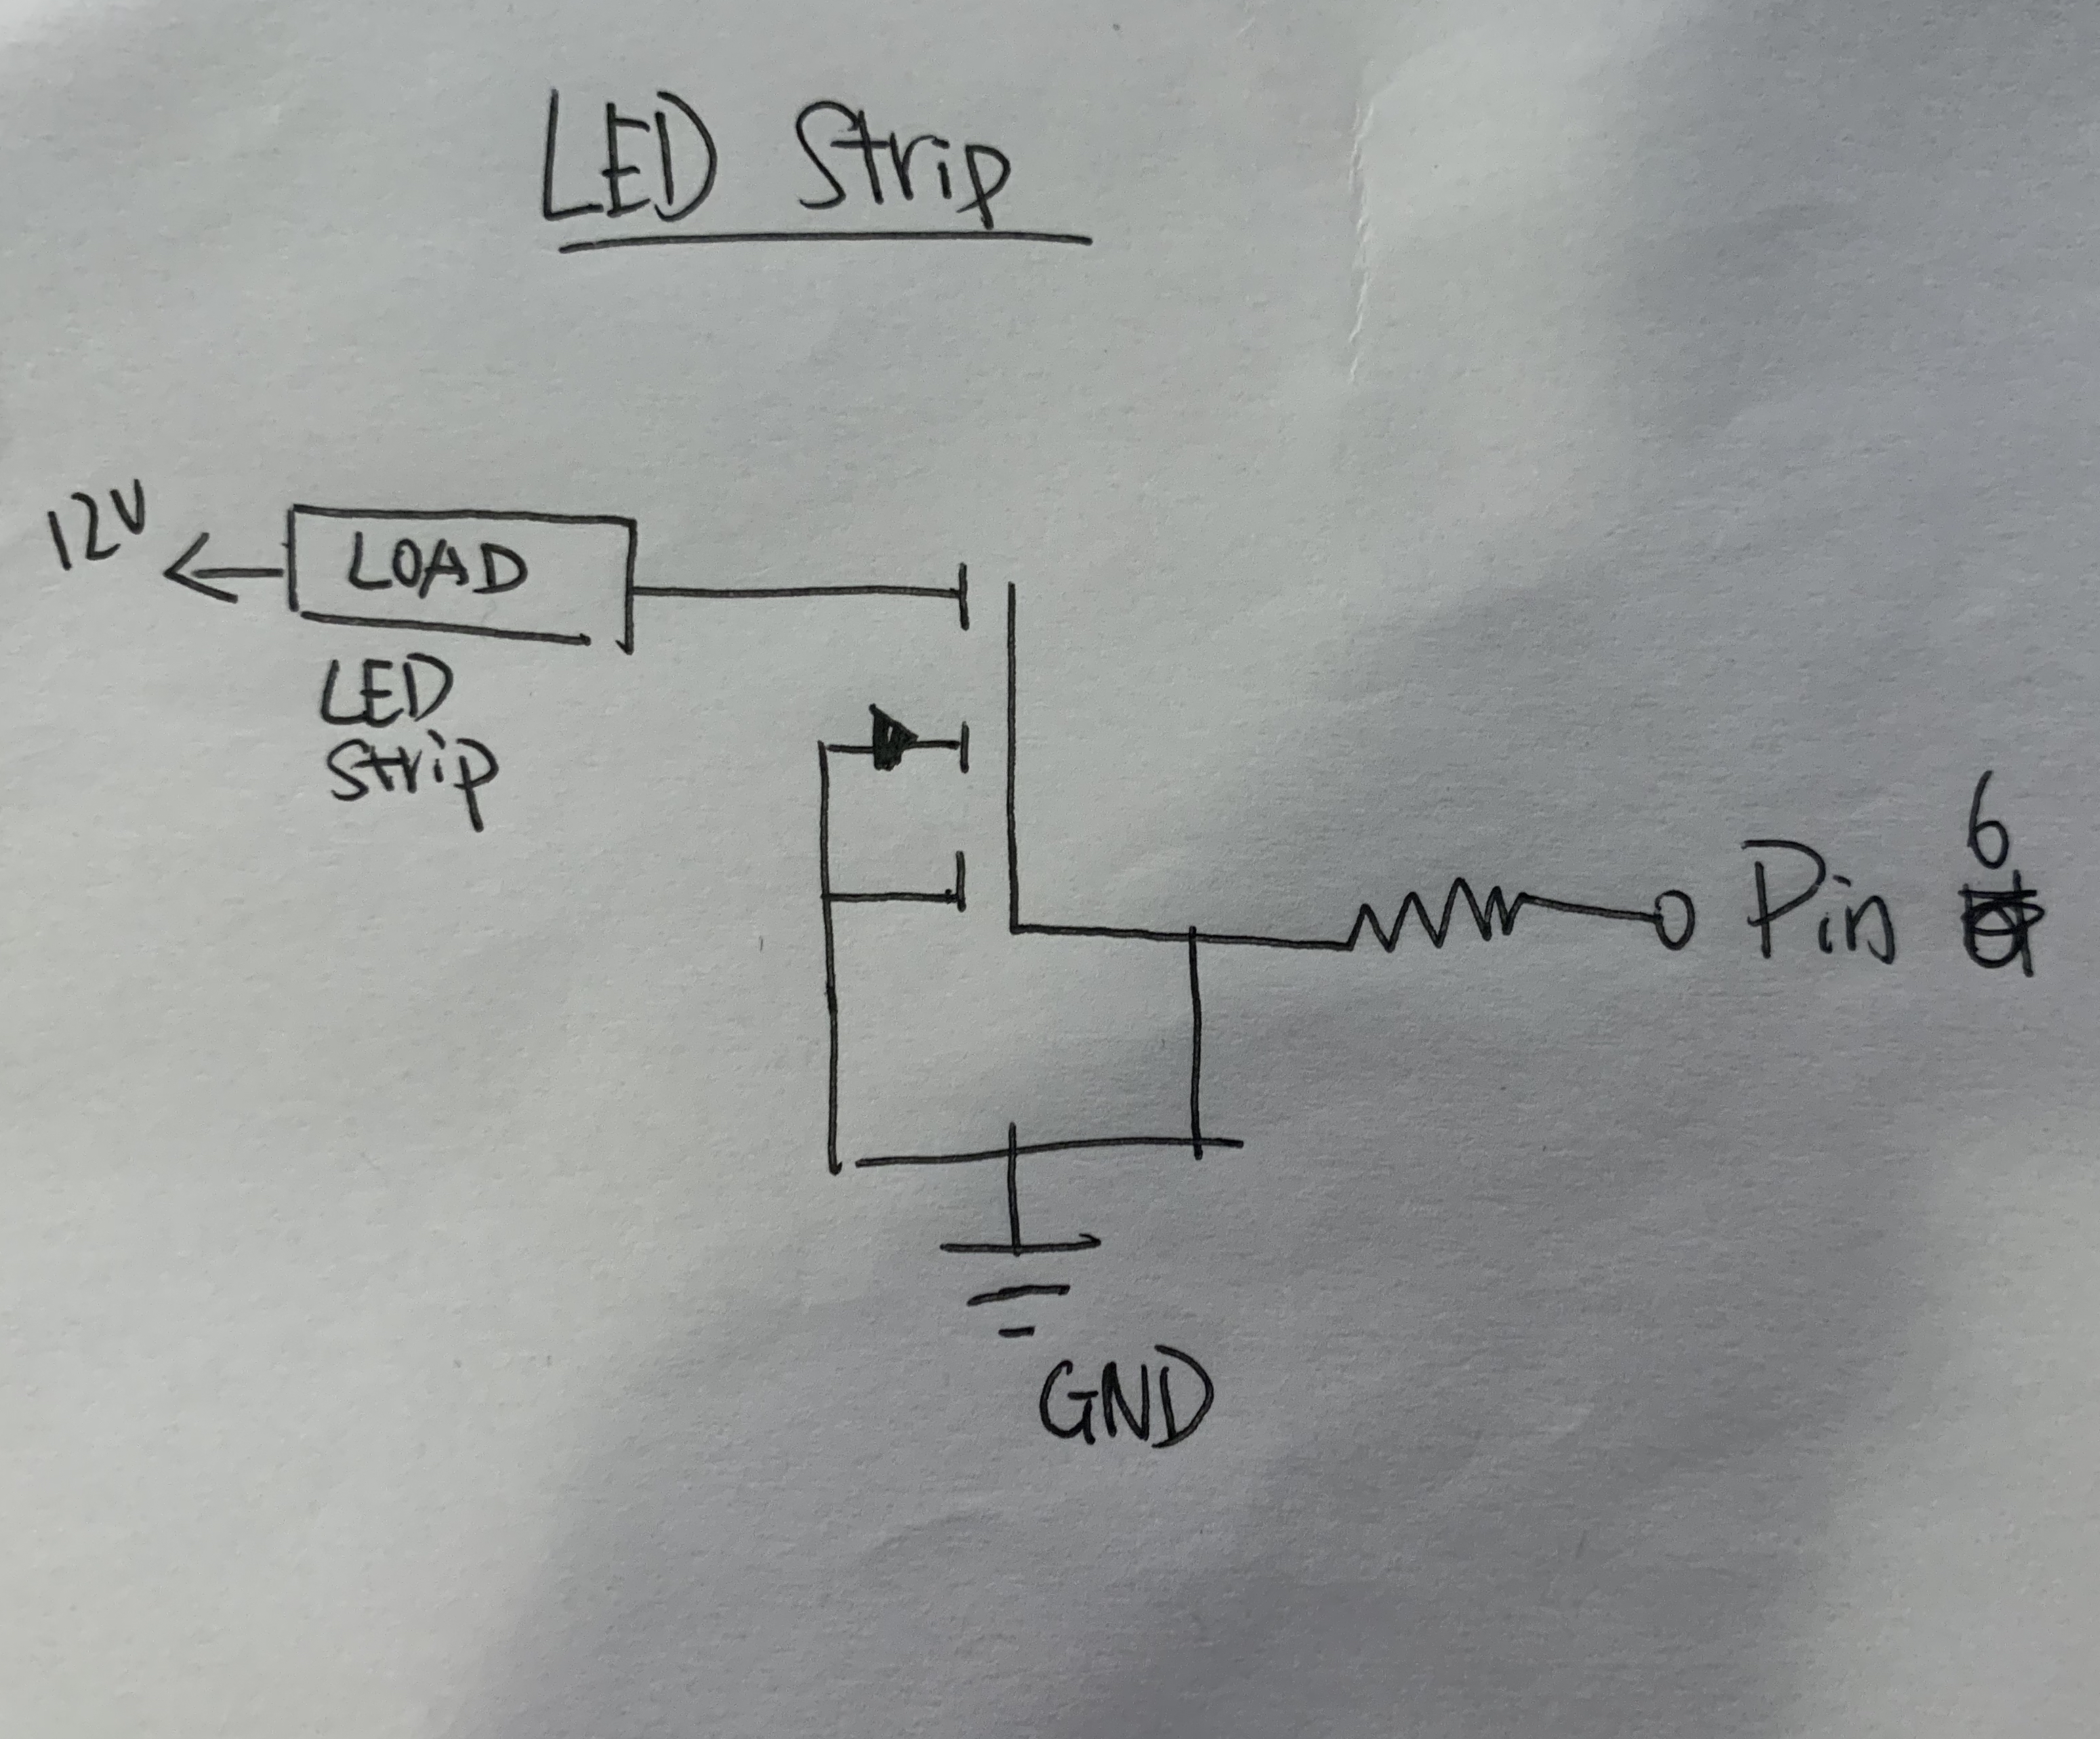 LED Strip
12V
LOAD
LED
Strip
6
Pin
GND